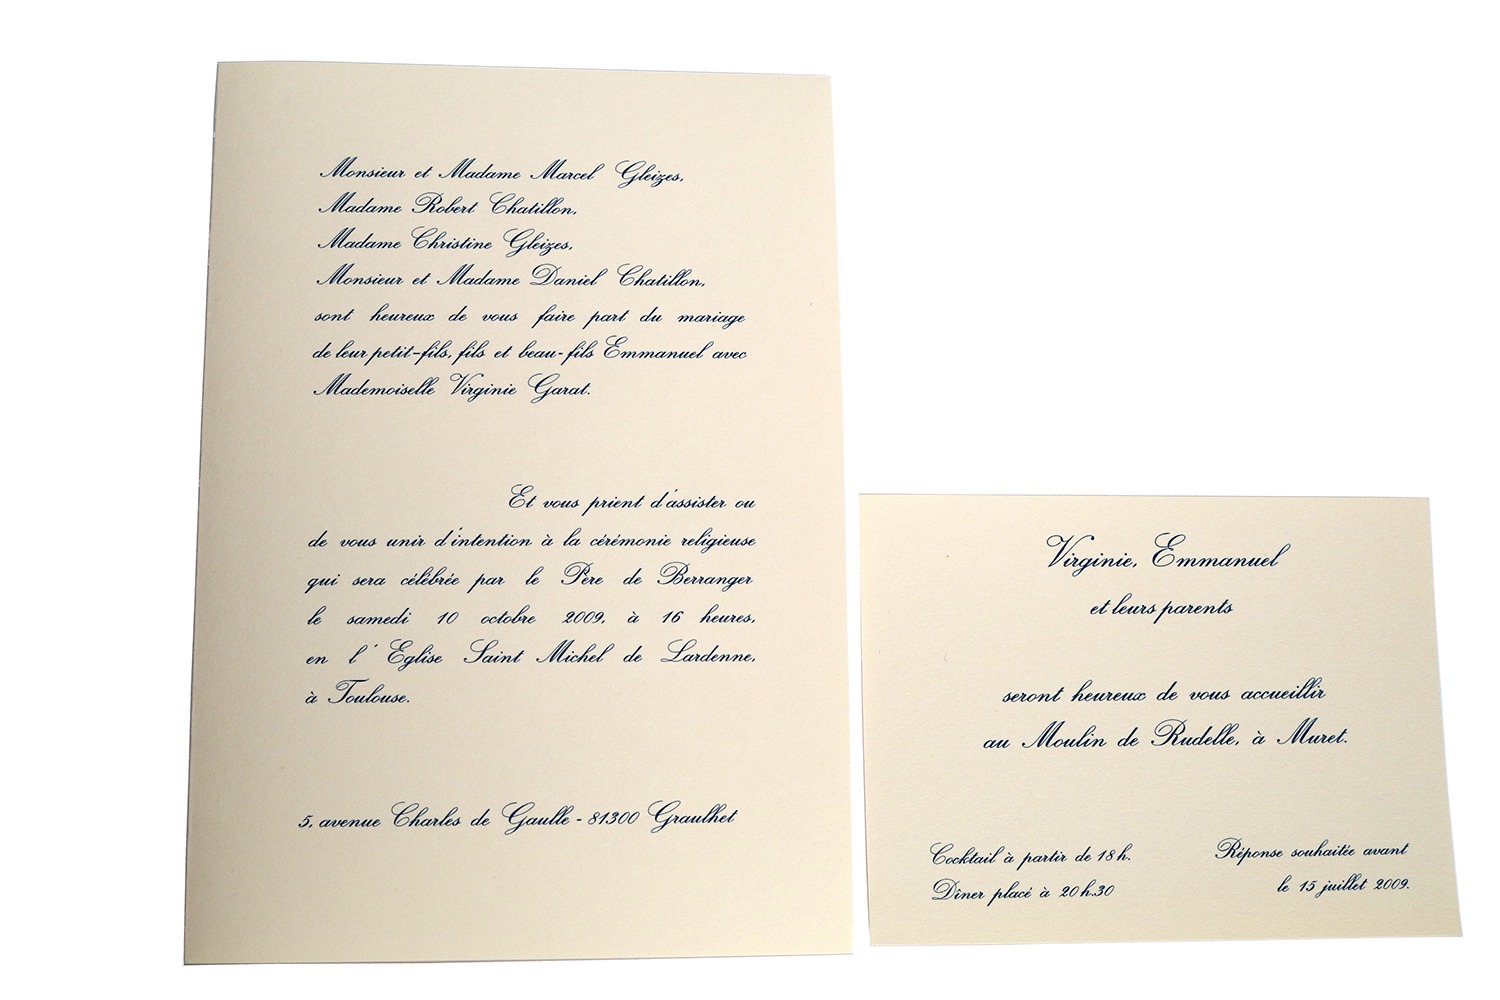 Monsieur et Madame Marcel Gleizes,
Madame Robert Chatillon,
Madame Christine Gleizes,
Monsieur et Madame Daniel Chatillon,
sont heureux de vous faire part du mariage
de leur petit-fils, fils et beau-fils Emmanuel avec
Mademoiselle Virginie Garat.
Et vous prient d'assister ou
de vous unir d'intention à la cérémonie religieuse
qui sera célébrée par le Père de Berranger
le samedi 10 octobre 2009, à 16 heures,
en l' Eglise Saint Michel de Lardenne,
à Toulouse.
5, avenue Charles de Gaulle - 81300 Graulhet
Virginie, Emmanuel
et leurs parents
seront heureux de vous accueillir
au Moulin de Rudelle, à Muret.
Cocktail à partir de 18 h.
Dîner placé à 20 h.30
Réponse souhaitée avant
le 15 juillet 2009.